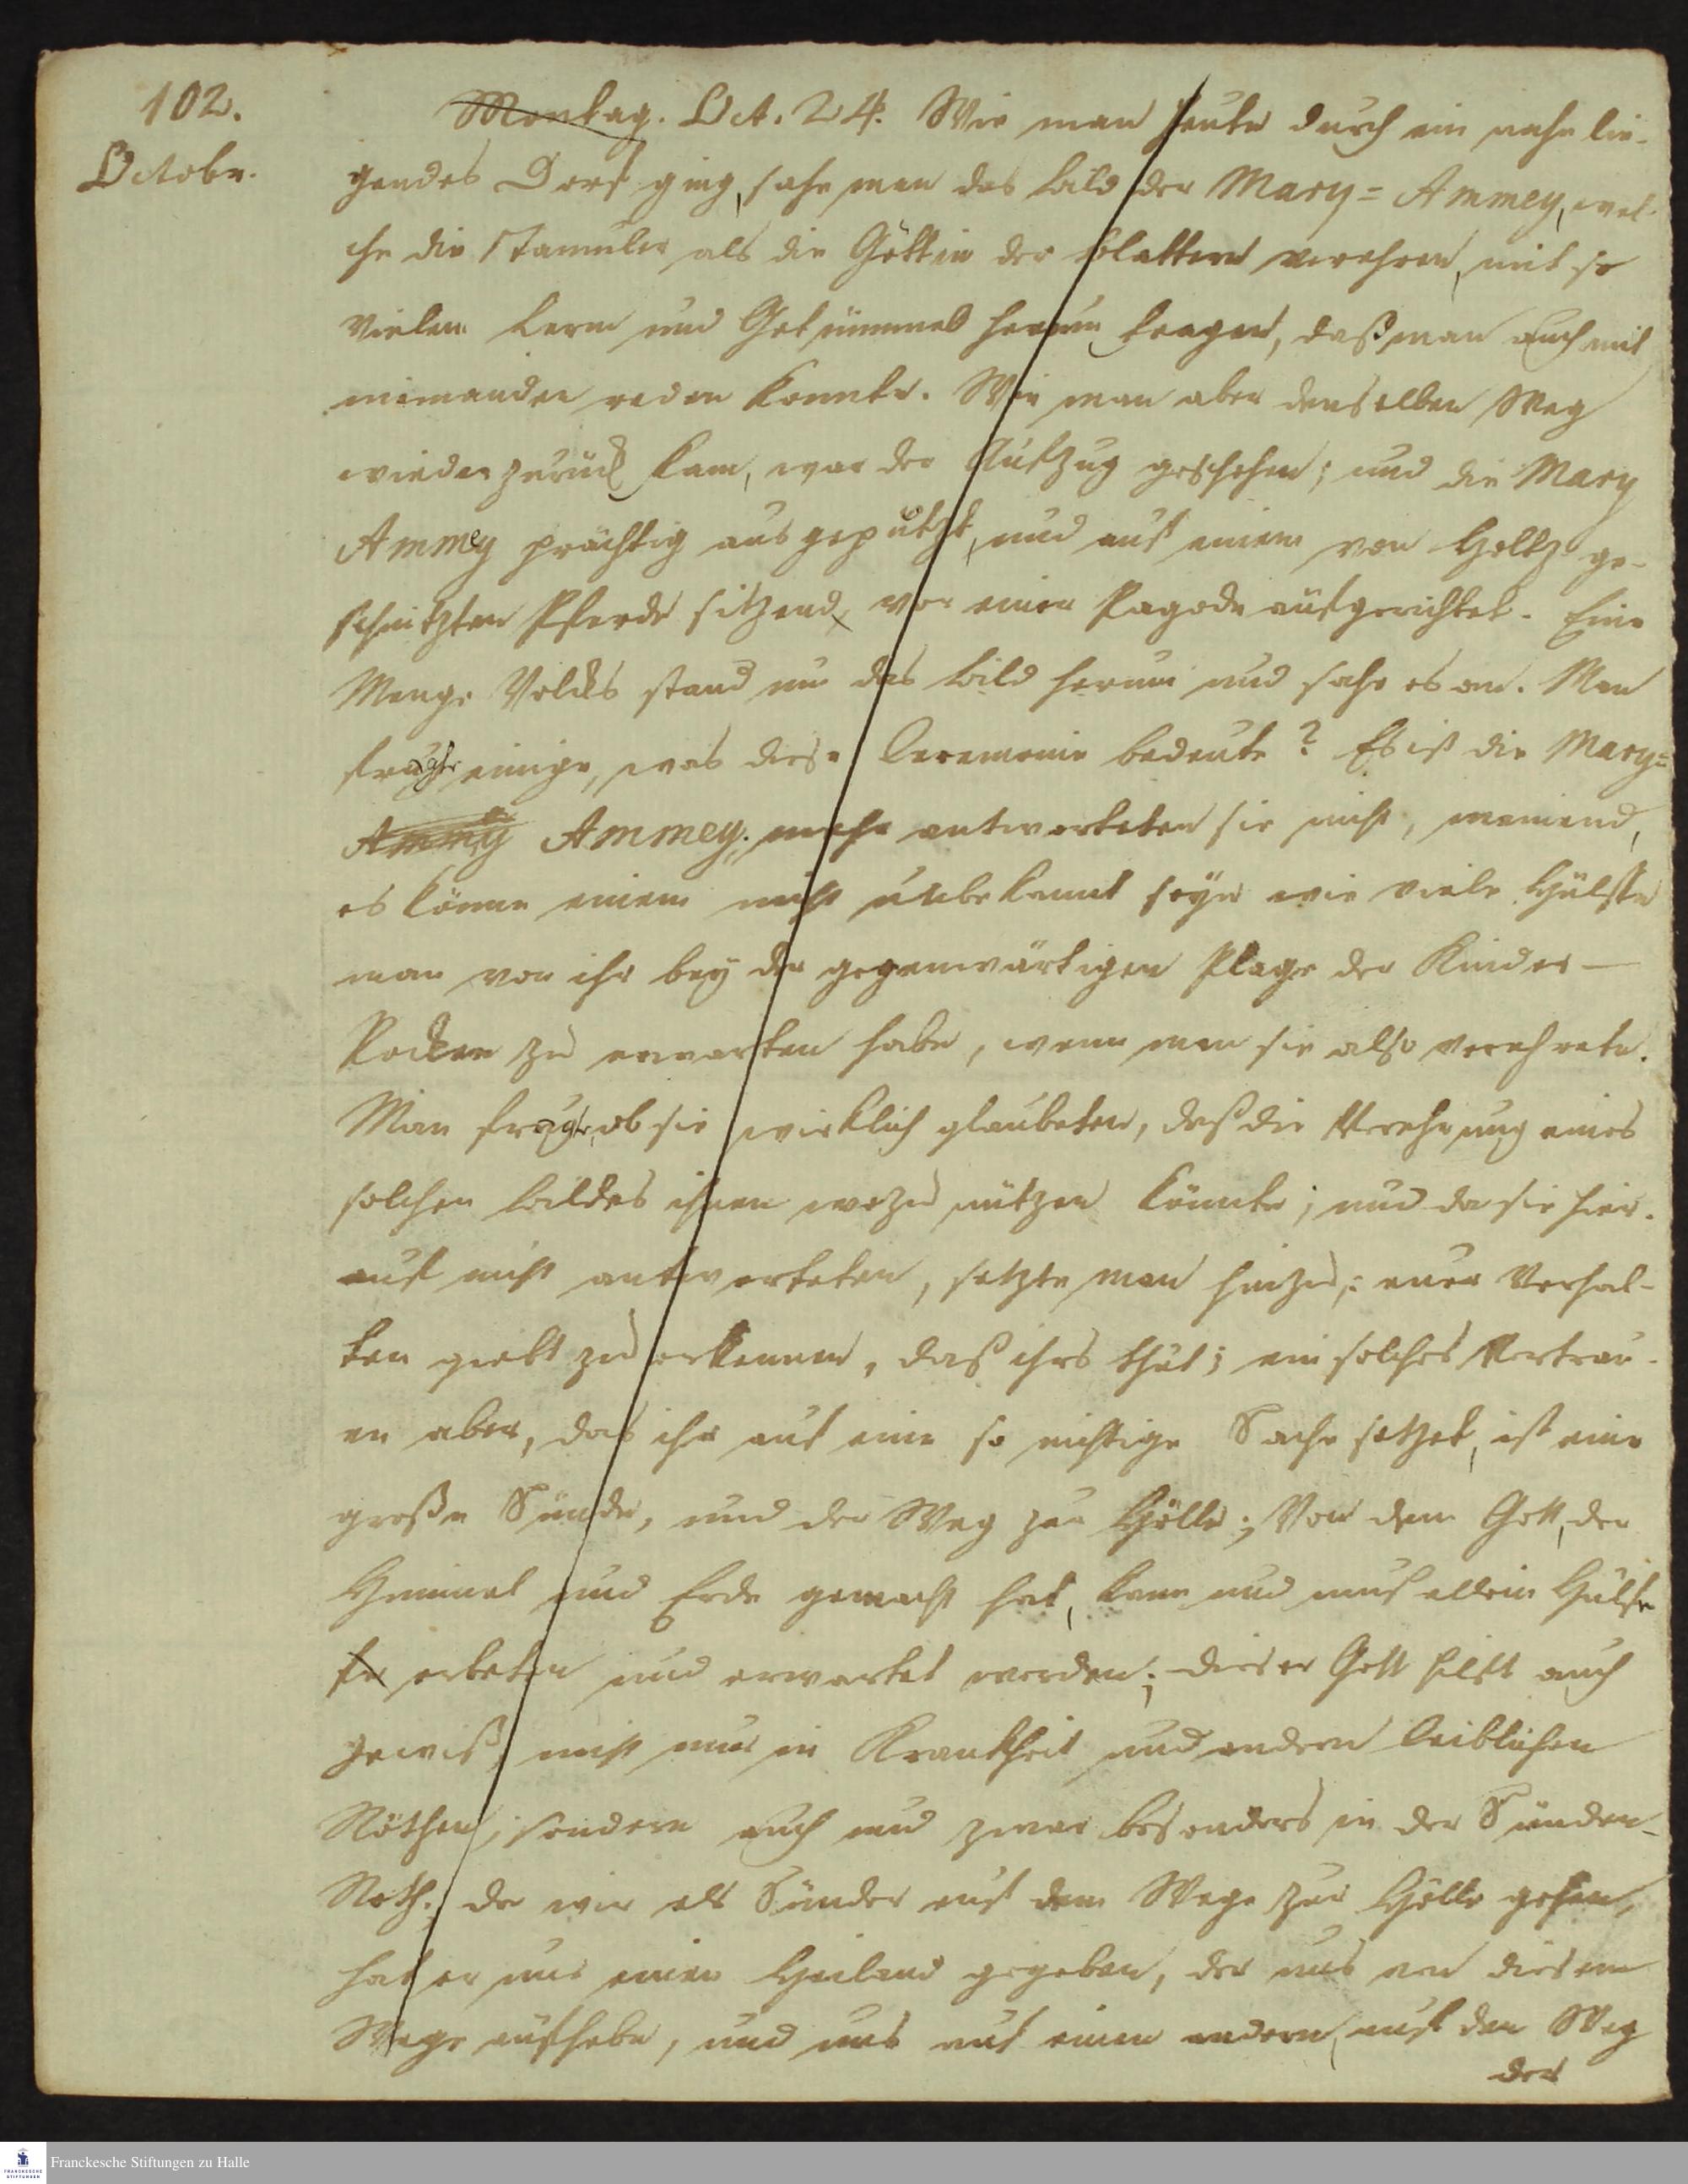 102.
Octobr.
Montag. Oct. 24. Wie man heute durch ein nahe lie-
gendes Dorf ging, sahe man das Bild der Mary=Ammey, wel-
che die Tamuler als die Göttin der Blattern verehren, mit so
vielem Lerm und Getümmel herum tragen, daß man auch mit
niemanden reden konnte. Wie man aber denselben Weg
wieder zurück kam, war der Aufzug geschehen; und die Mary
Ammey prächtig ausgeputzt, und auf einem von Holtz ge-
schnitzten Pferde sitzend, vor einer Pagode aufgerichtet. Eine
Menge Volcks stand um das Bild herum und sahe es an. Man
fragte einige, was diese Ceremonie bedeute? Es ist die Mary=
Ammey Ammey; mehr antworteten sie nicht, meinend,
es könne einem nicht unbekannt seyn wie viele Hülffe
man von ihr bey der gegenwärtigen Plage der Kinder-
Pocken zu erwarten habe, wenn man sie also verehrete.
Man fragte, ob sie wircklich glaubeten, daß die Verehrung eines
solchen Bildes ihnen wozu nützen könnte; und da sie hier-
auf nicht antworteten, setzte man hinzu: euer Verhal-
ten giebt zu erkennen, daß ihrs thut; ein solches Vertrau-
en aber, das ihr auf eine so nichtige Sache setzet, ist eine
große Sünde, und der Weg zur Hölle; Von dem Gott, der
Himmel und Erde gemacht hat, kann und muß allein Hülfe
fe erbeten und erwartet werden; dieser Gott hilft auch
gewiß, nicht nur in Krankheit und andern leiblichen
Nöthen, sondern auch und zwar besonders in der Sünden-
Noth; da wir als Sünder auf dem Wege zur Hölle gehen,
hat er uns einen Heiland gegeben, der uns von diesem
Wege aufhebe, und uns auf einen andern, auf den Weg
der
Franckesche Stiftungen zu Halle